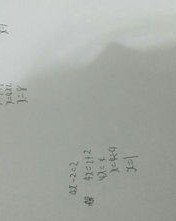 4x-2=2
解
4x=2+2
4x=4
x=4÷4
x=1
x=8